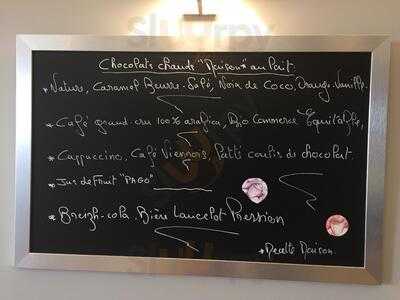 Chocolats chauds "Maison" au lait:
* Nature, Caramel Beurre-Salé, Noix de Coco, Orange, Vanille.
* Café grand cru 100% arabica, Bio Commerce Equitable,
* Cappuccino, Café Viennois, Petit coulis de chocolat
* Jus de Fruit "PAGO"
* Breizh-cola, Bière Lancelot Pression
* Recette Maison.